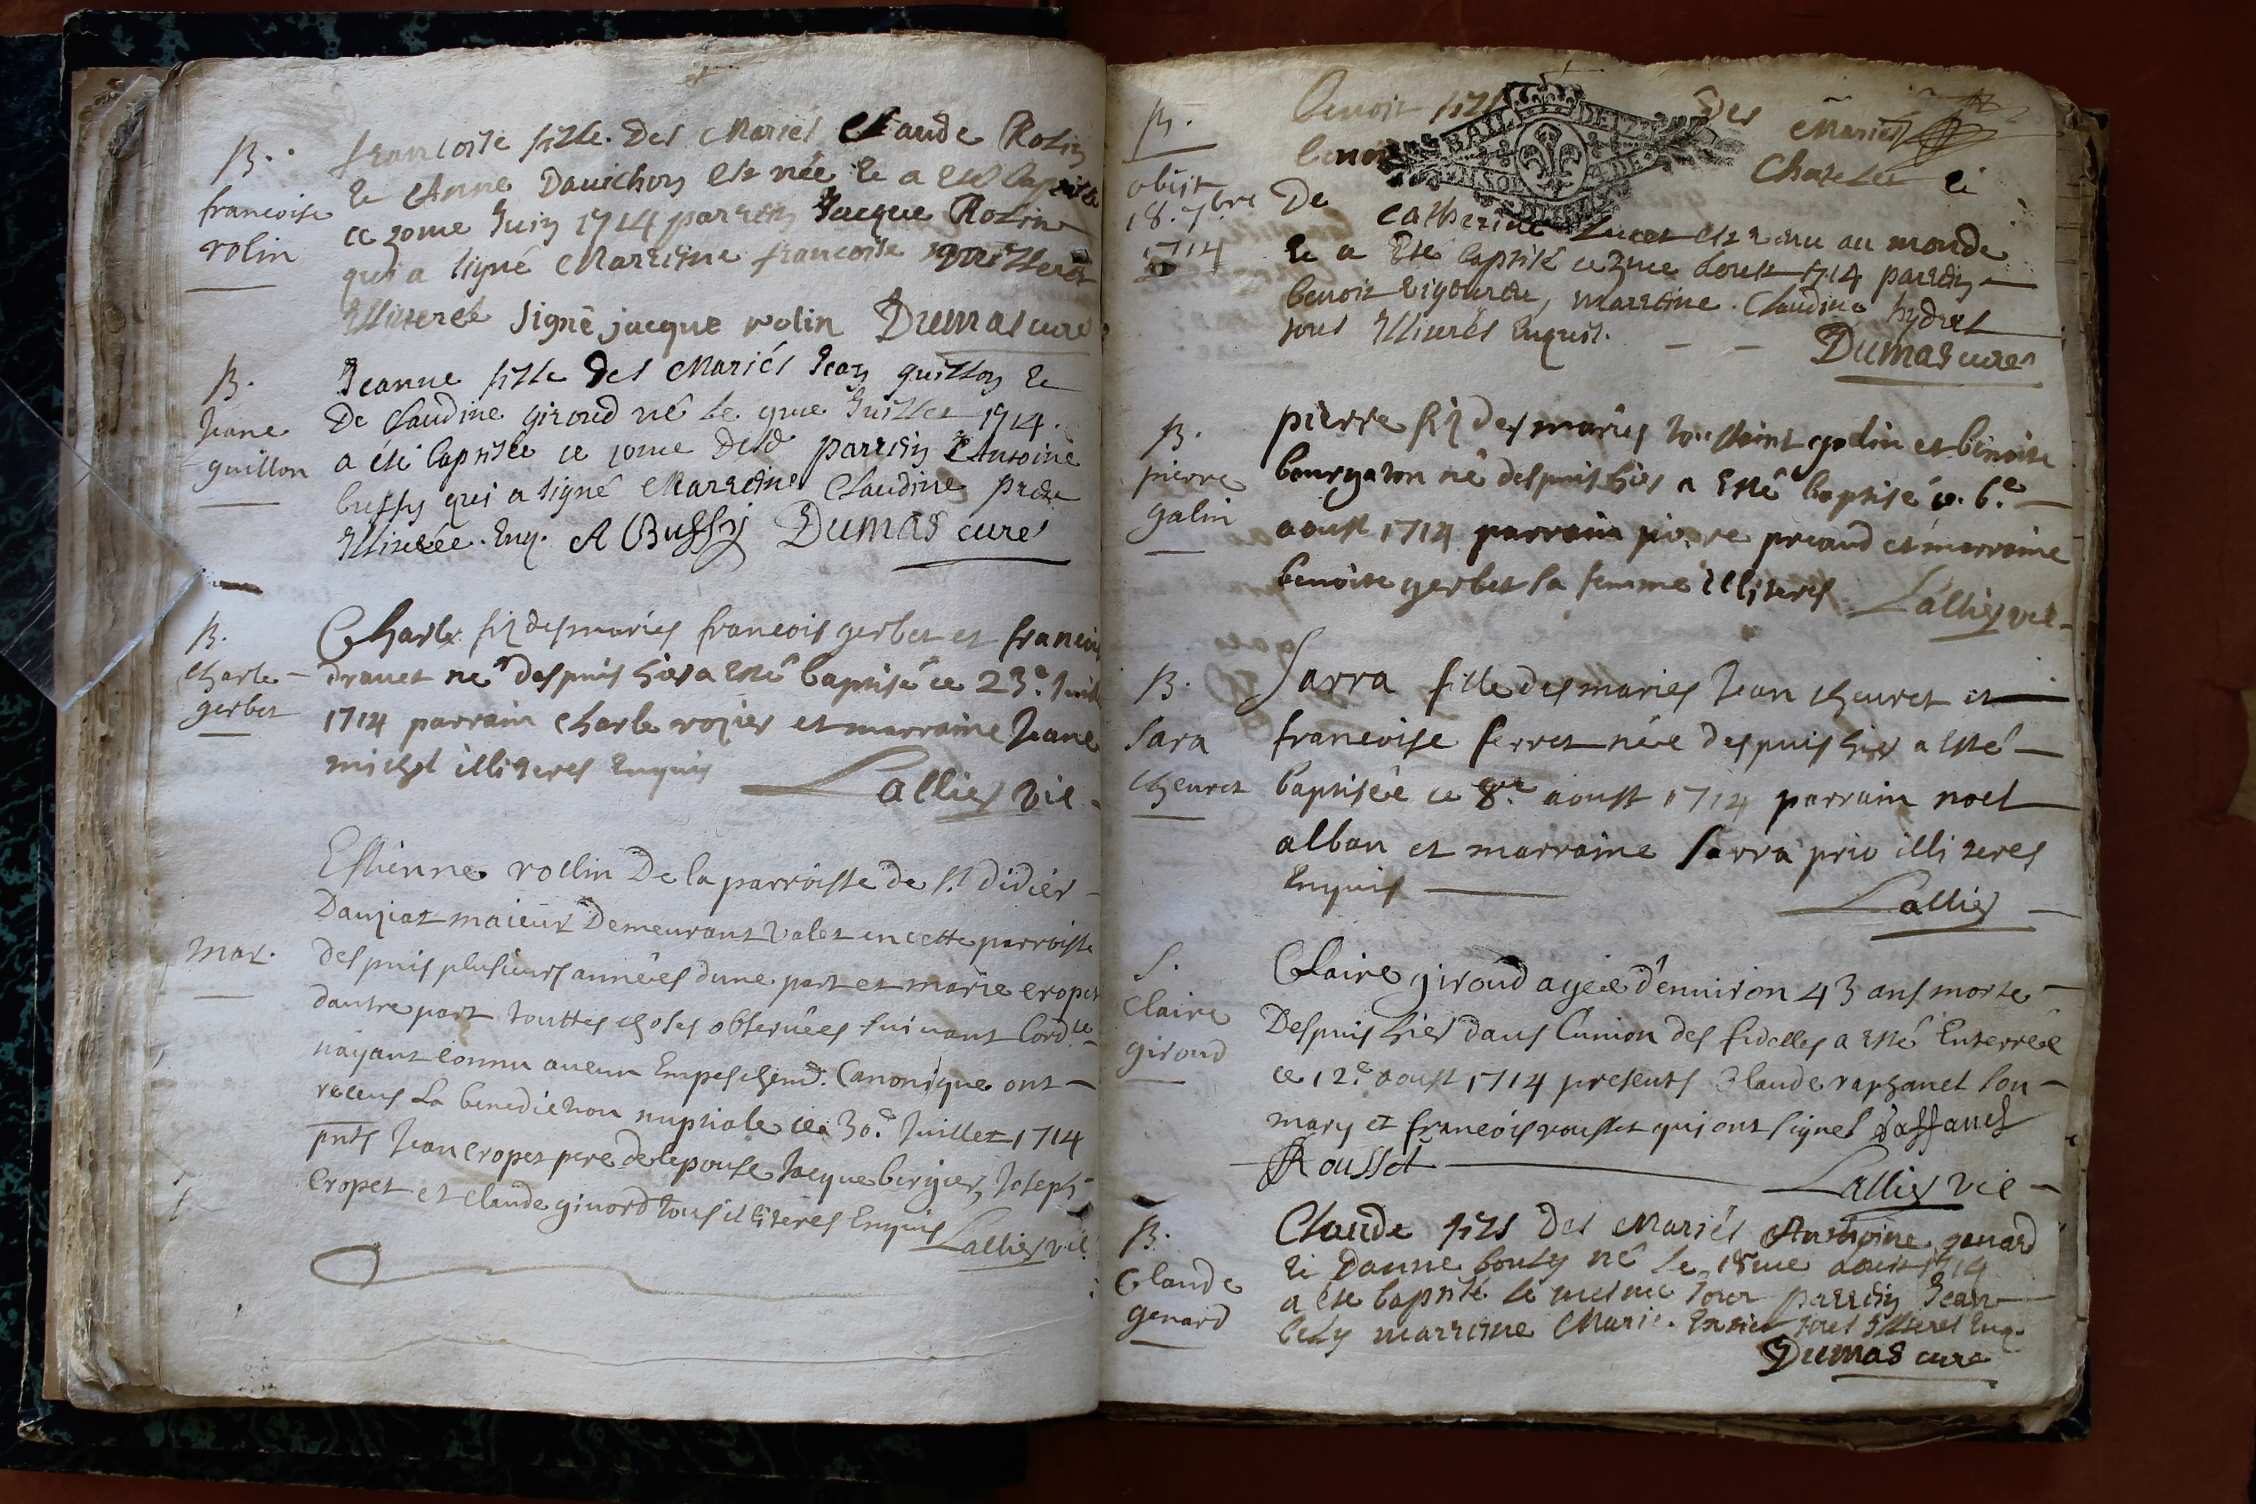 B.
francoise
rolin
francoise fille des Mariés Claude Rolin
et Anne Dauichon est née et a esté baptisée
ce 10me Juin 1714 parrein Jacque Rolin
qui a signé Marreine francoise
Illiterée signé jacque rolin Dumas curé
B.
Jeane
guillon
Jeanne fille des Mariés Jean guillon et
De Claudine giroud né le 9me Juillet 1714.
a été baptisée ce 10me Dud parrein Antoine
bussy qui a signé Marreine Claudine
Illiterée. Enq. A Bussy Dumas curé
B.
charle
gerbet
Charle fiz des mariés francois gerbet et francoise
drauet né despuis hier a esté baptisé ce 23e Juillet
1714 parrain charle rozier et marraine Jeane
michel illiteres Enquis
Lallier vic
mar.
Estienne rollin De la parroisse de St didier
Dauziat maieur Demeurant valet en cette parroisse
despuis plusieurs années dune part et marie cropet
dautre part touttes choses obseruées suiuant lordce
nayant connu aucun Empeschemt. Canonique ont
receus La benediction nuptiale ce 30e Juillet 1714
pnts Jean cropet pere de lepouse Jacque bergier, Joseph
cropet et claude ginord tous illiteres Enquis
Lallier vic
B.
obiit
18. 7bre
1714
benoit fils des Mariés
De Catherine est venu au monde
et a esté baptisé ce 2me Aoust 1714 parrein
benoit marreine Claudine
tous Illiterés Enquis.
Dumas curé
B.
pierre
galin
pierre fiz des mariés toussaint galin et benoite
bourgaton né despuis hier a esté baptisé ce 6e
aoust 1714 parrain pierre preaud et marraine
benoite gerbet sa femme illiteres
Lallier vic
B.
Sara
cheuret
Sarra fille des mariés Jean cheuret et
francoise ferret née despuis hier a esté
baptisée ce 8e aoust 1714 parrain noel
alban et marraine Sarra prio illiteres
Enquis
Lallier
S.
claire
giroud
Claire giroud agée d'enuiron 43 ans morte
Despuis hier dans l'union des fidelles a esté Enterrée
ce 12e aoust 1714 presents claude raphanel son
mary et francois rousset qui ont signes Raffanel
Rousset
Lallier vic
B.
Claude
genard
Claude fils des Mariés Anthoine genard
et Danne bouly né le 18me Aoust 1714
a esté baptisé le mesme Jour parrein Jean
marreine Marie tous Illiterés Enq.
Dumas curé